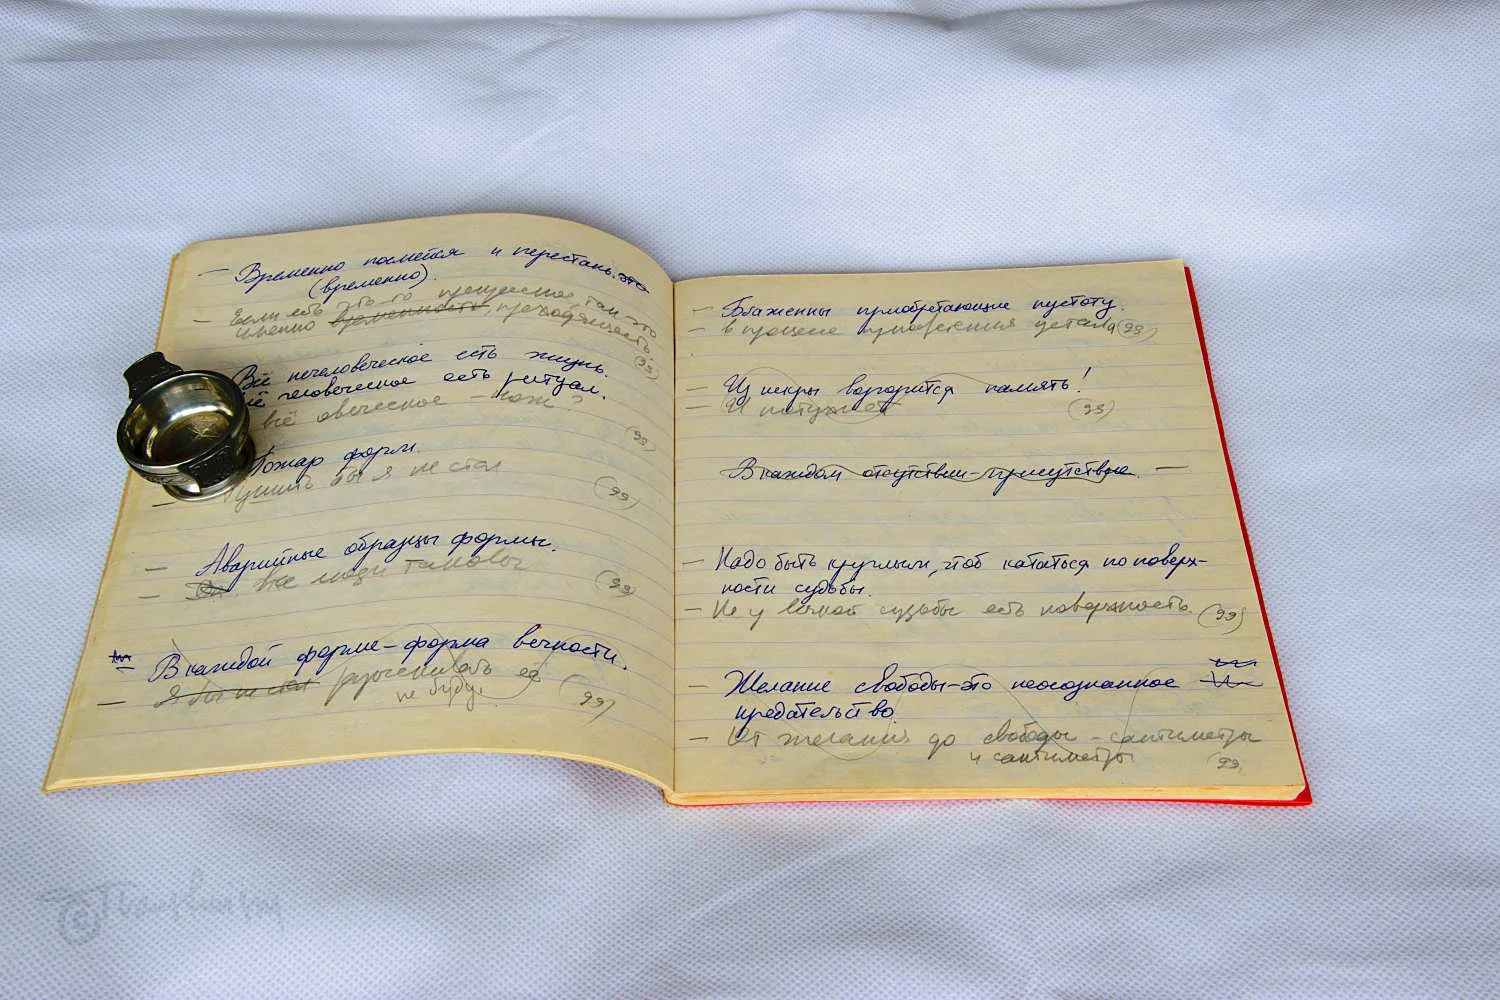 — Временно посмейся и перестань. это
(временно).
— Если есть что-то прекрасное, там это
именно временность, преходящесть.
(99)
Всё нечеловеческое есть жизнь.
Всё человеческое есть ритуал.
всё овеческое – нож?
(99)
Пожар форм.
— Тушить бы я не стал
(99)
— Аварийные образцы формы.
— Все люди таковы
(99)
В каждой форме – форма вечности.
— Я бы не стал разыскивать её
не буду.
(99)
— Блаженны приобретающие пустоту.
— в процессе приобретения детали (99)
— Из искры возгорится память!
— И потухнет (99)
В каждом отсутствии – присутствие. —
— Надо быть круглым, чтоб кататься по поверх-
ности судьбы.
— Не у всякой судьбы есть поверхность. (99)
— Желание свободы – это неосознанное
предательство.
— От желания до свободы – сантиметры
и сантиметры
(99)